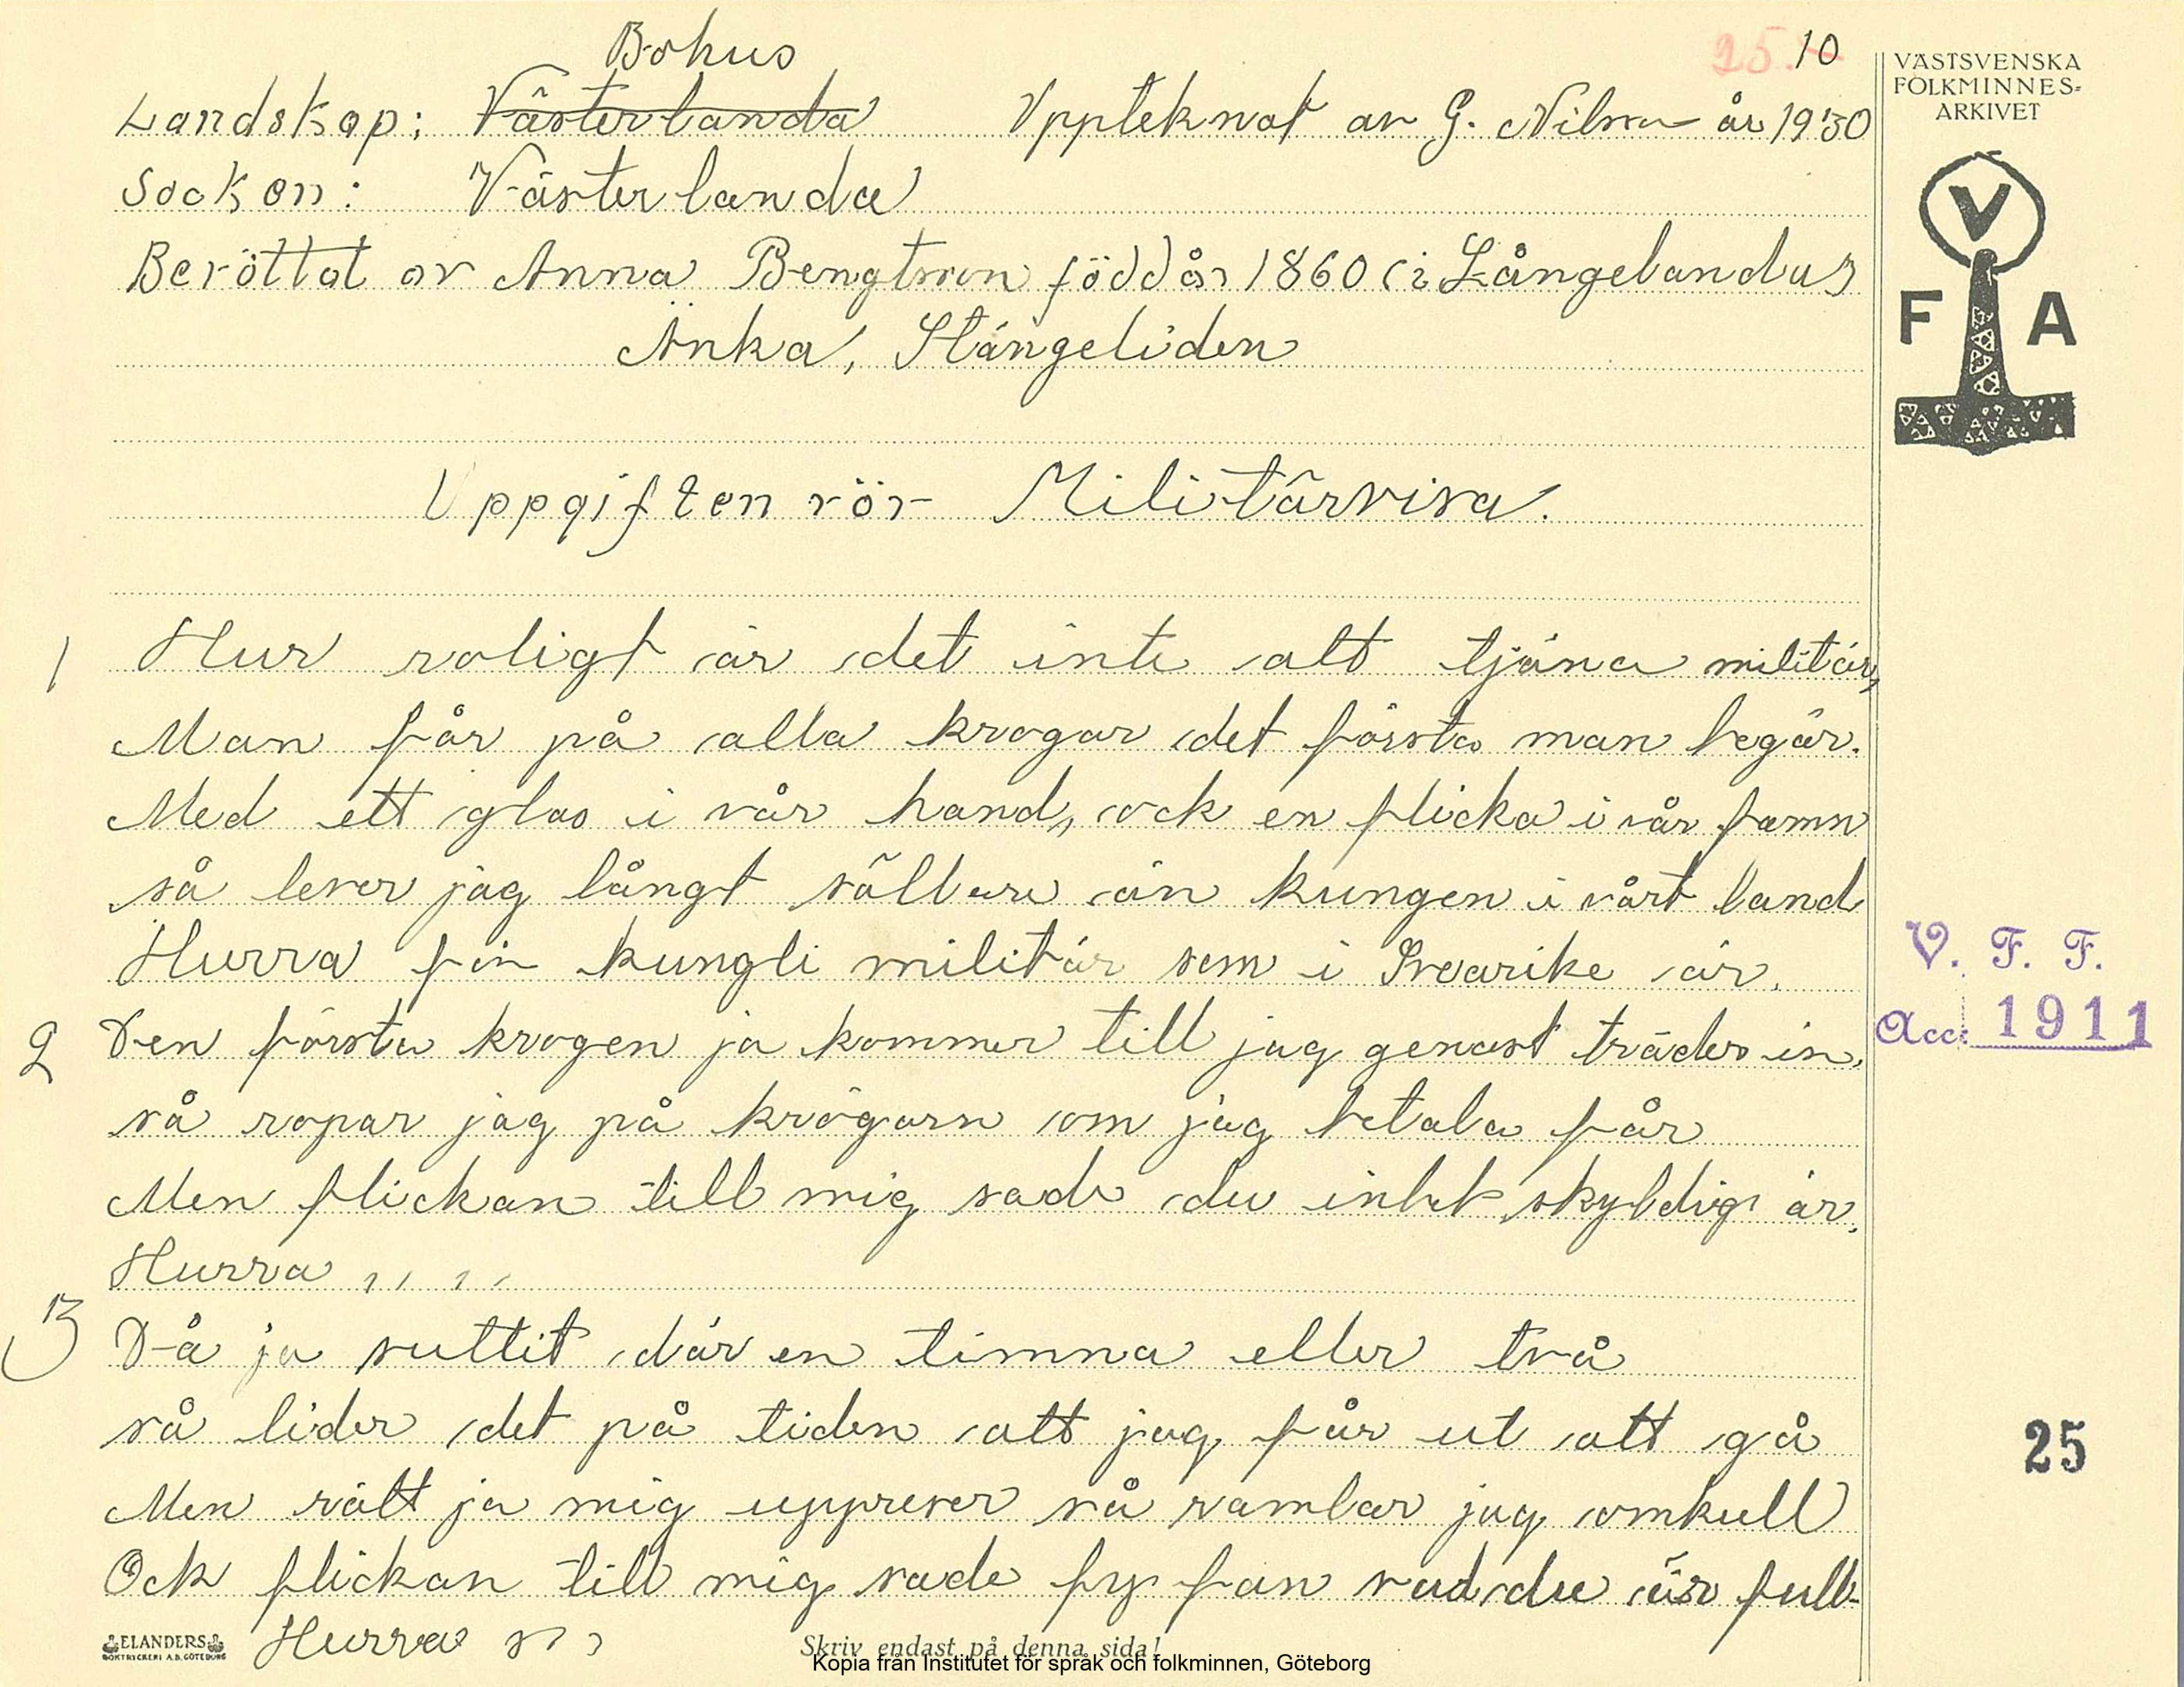 25. 10
Bohus
Landskap: Västerlanda Uppteknat av G. Nilsson år 1930
Socken: Västerlanda
Berättat av Anna Bengtsson född år 1860 i Långelanda s
Änka, Stängeliden
Uppgiften rör Militärvisa.
1 Hur roligt är det inte att tjäna militär,
Man får på alla krogar det första man begär.
Med ett glas i vår hand, ock en flicka i vår famn
så lever jag långt sällare än kungen i vårt land
Hurra för kungli militär som i Svearike är.
2 Den första krogen ja kommer till jag genast träder in,
så ropar jag på krögarn om jag betala får
Men flickan till mig sade du intet skyldig är.
Hurra , , , ,
3 Då ja suttit där en timma eller två
så lider det på tiden att jag får ut att gå
Men rätt ja mig uppreser så ramlar jag omkull
Ock flickan till mig sade fy fan vad du är full
Hurra
VÄSTSVENSKA
FOLKMINNES-
ARKIVET
V
F A
V. F. F.
Acc. 1911
25
ELANDERS
BOKTRYCKERI A.B. GÖTEBORG
Skriv endast på denna sida!
Kopia från Institutet för språk och folkminnen, Göteborg